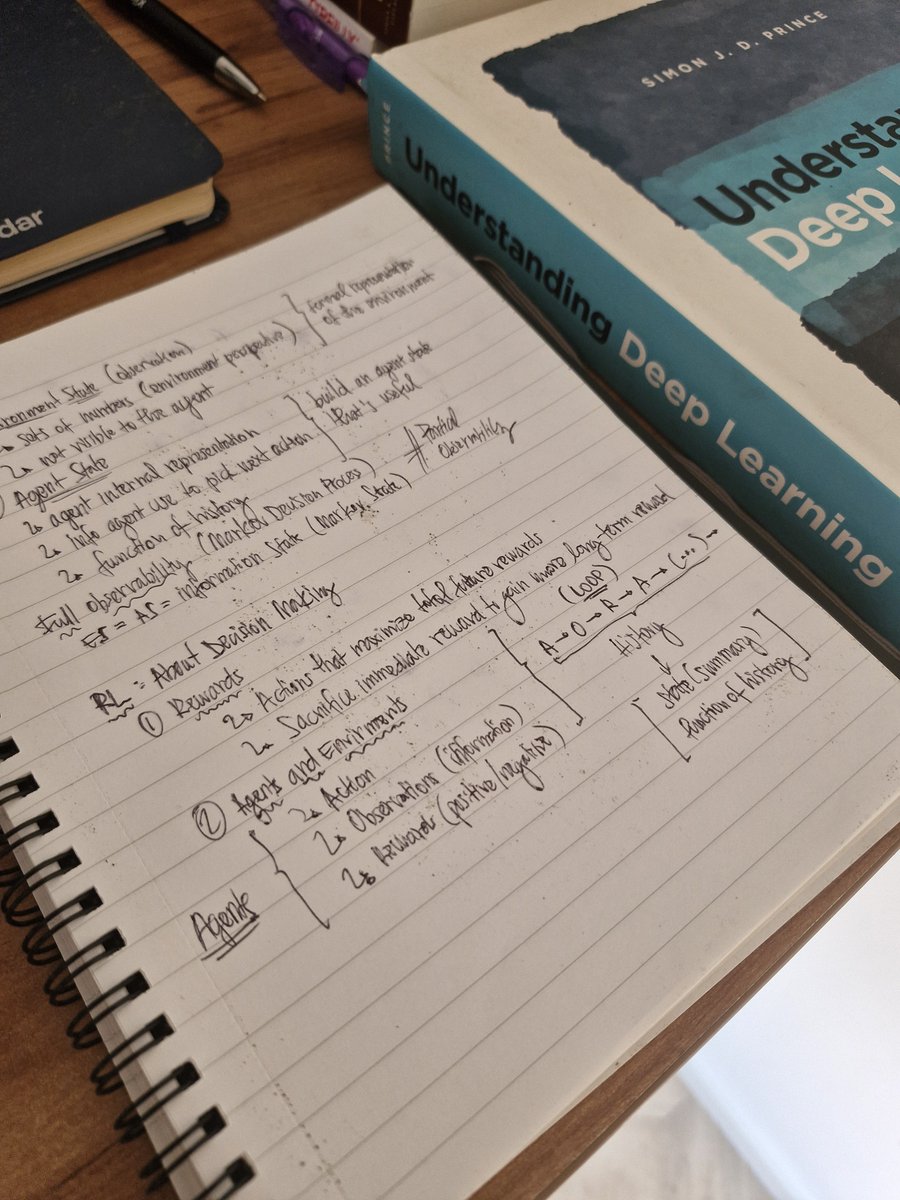 SIMON J. D. PRINCE
Understan
Deep L
PRINCE
Understanding Deep Learning
dar
ironment State (observation)
↳ sets of numbers (environment perspective)
↳ not visible to the agent
} formal representation
of the environment
) Agent State
↳ agent internal representation
↳ info agent use to pick next action
↳ function of history
} build an agent state
that's useful
Full observability (Markov Decision Process)
ES = AS = information State (Markov State)
# Partial
observability
RL: About Decision Making
① Rewards
↳ Actions that maximize total future rewards
↳ Sacrifice immediate reward to gain more long-term reward
② Agents and Enviroments
↳ Action
↳ Observations (information)
↳ Reward (positive/negative)
Agents
(LOOP)
A → O → R → A → (...) →
History
↓
State (summary)
function of history